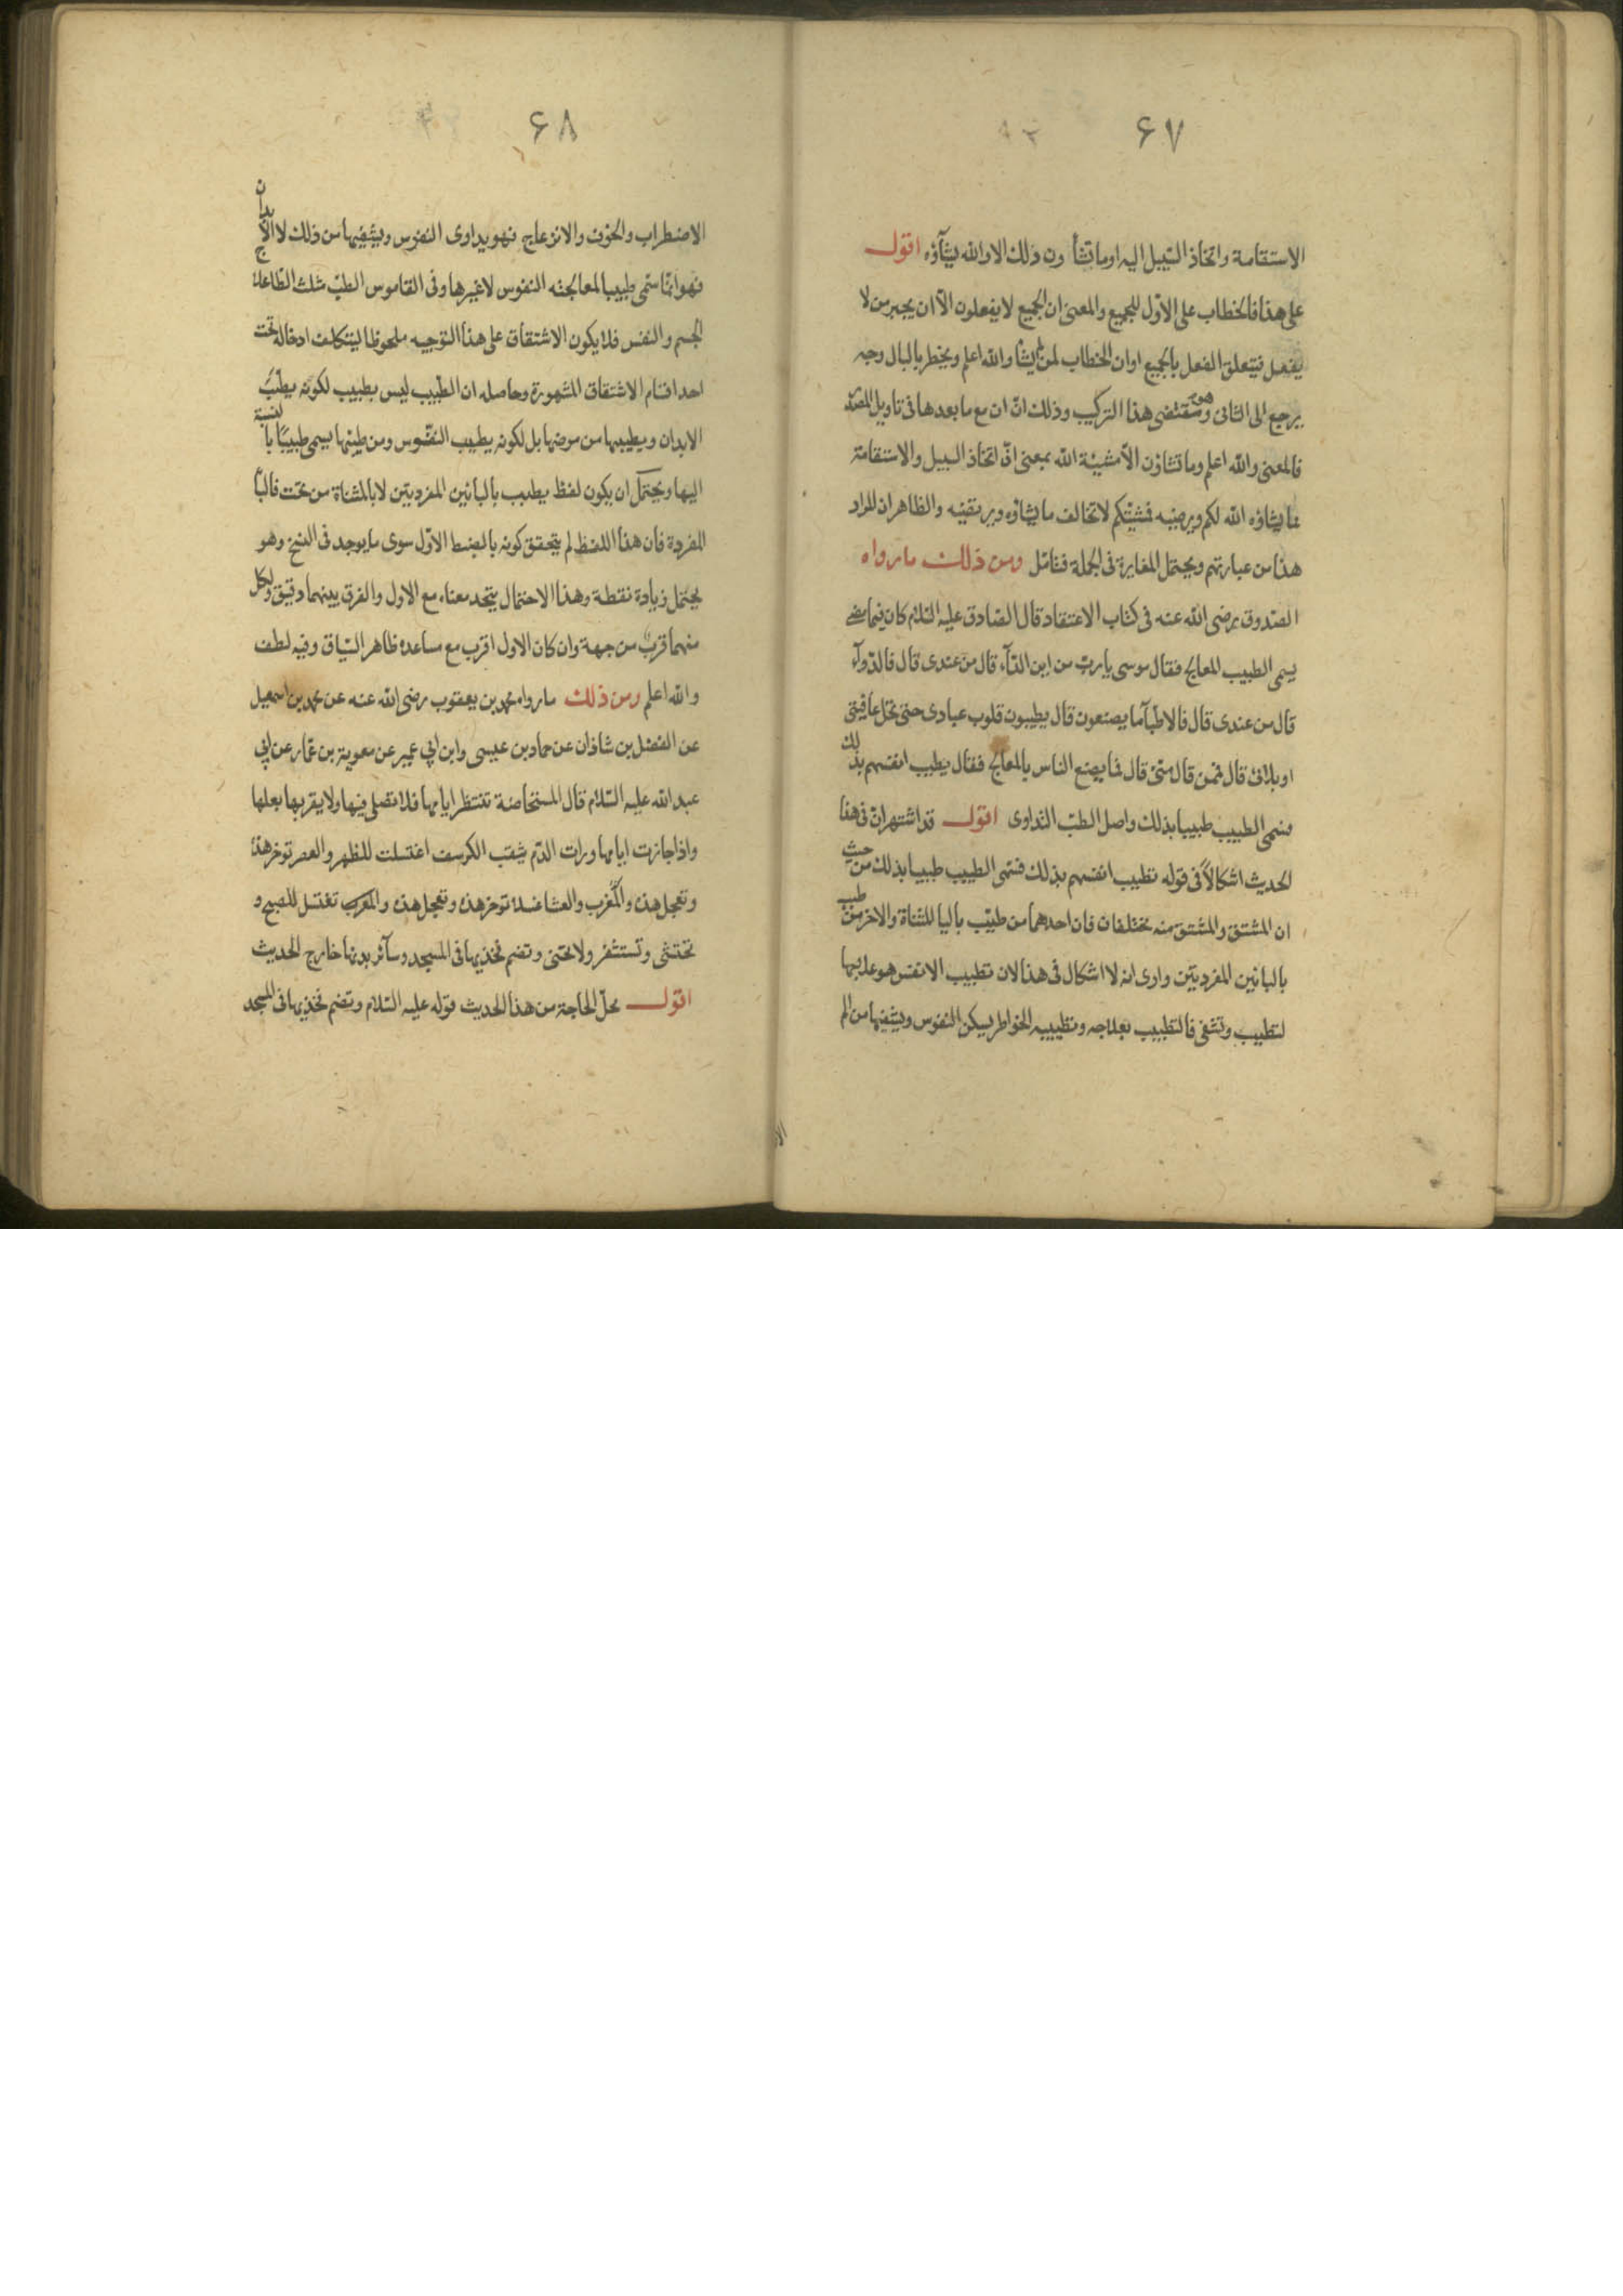 ۶۷
الاستقامة واتخاذ السّبيل اليه او ما تشاؤن ذلك الا والله يشآؤه اقول
على هذا فالخطاب على الاوّل للجميع والمعنى ان الجميع لا يفعلون الّا ان يجبر من لا
يفعل فيتعلق الفعل بالجميع او ان الخطاب لمن لم يشأ والله اعلم ويخطر بالبال وجه
يرجع الى الثانى وهو مقتضى هذا التركيب وذلك انّ ان مع ما بعدها فى تاويل المصدر
فالمعنى والله اعلم وما تشاؤن الّا مشيّة الله بمعنى انّ اتخاذ السبيل والاستقامة
مما يشاؤه الله لكم ويرضيه فمشيّتكم لا تخالف ما يشاؤه ويرتضيه والظاهر ان المراد
هذا من عبارتهم ويحتمل المغايرة فى الجملة فتامّل ومن ذلك ما رواه
الصّدوق رضى الله عنه فى كتاب الاعتقاد قال الصّادق عليه السّلام كان فيما مضى
يسمى الطبيب المعالج فقال موسى يا ربّ من اين الدّآء قال من عندى قال فالدّوآء
قال من عندى قال فالاطبآ ما يصنعون قال يطيبون قلوب عبادى حتى تحل عافيتى
او بلائى قال فمن قال منّى قال فما يصنع الناس بالمعالج فقال يطيب انفسهم بذلك
فسمى الطبيب طبيبا بذلك واصل الطبّ التداوى اقول قد اشتهر انّ فى هذا
الحديث اشكالاً فى قوله تطييب انفسهم بذلك فسمّى الطبيب طبيبا بذلك من حيث
ان المشتق والمشتق منه مختلفان فان احدهما من طيّب باليا المثناة والاخر من طبب
بالبائين المفرديتين وارى انه لا اشكال فى هذا لان تطبيب الانفس هو علاجها
لتطيب وتشفى فالتطبيب بعلاجه وتطييبه الخواطر يسكن النفوس ويشفيها من الم
۶۸
الاضطراب والحزن والانزعاج فهو يداوى النفوس ويشفيها من ذلك لا الابدان
فهو انّما سمّى طبيبا لمعالجته النفوس لا غيرها وفى القاموس الطبّ مثلث الطّا علاج
الجسم والنفس فلا يكون الاشتقاق على هذا التوجيه ملحوظا ليتكلف ادخاله تحت
احد اقسام الاشتقاق المشهورة وحاصله ان الطّبيب ليس بطبيب لكونه يطبّب
الابدان ويطببها من مرضها بل لكونه يطيب النفوس ومن طبّها يسمى طبيبًا بالنسبة
اليها ويحتمل ان يكون لفظ يطبب بالبائين المفرديتين لا بالمثناة من تحت فالبآ
المفردة فان هذا اللفظ لم يتحقق كونه بالضبط الاوّل سوى ما يوجد فى النسخ وهو
يحتمل زيادة نقطة وهذا الاحتمال يتحد معناه مع الاول والفرق بينهما دقيق ولكل
منهما قربٌ من جهة وان كان الاول اقرب مع مساعدة ظاهر السّياق وفيه لطف
والله اعلم ومن ذلك ما رواه محمد بن يعقوب رضى الله عنه عن محمد بن اسمعيل
عن الفضل بن شاذان عن حماد بن عيسى وابن ابى عمير عن معوية بن عمّار عن ابى
عبد الله عليه السّلام قال المستحاضة تنتظر ايامها فلا تصلى فيها ولا يقربها بعلها
واذا جازت ايامها ورات الدّم يثقب الكرسف اغتسلت للظهر والعصر توخر هذه
وتعجل هذه وللمغرب والعشا غسلا توخر هذه وتعجل هذه والمغرب تغتسل للصبح و
تحتشى وتستثفر ولا تحنى وتضم فخذيها فى المسجد وسآئر بدنها خارج الحديث
اقول محلّ الحاجة من هذا الحديث قوله عليه السّلام وتضم فخذيها فى المسجد